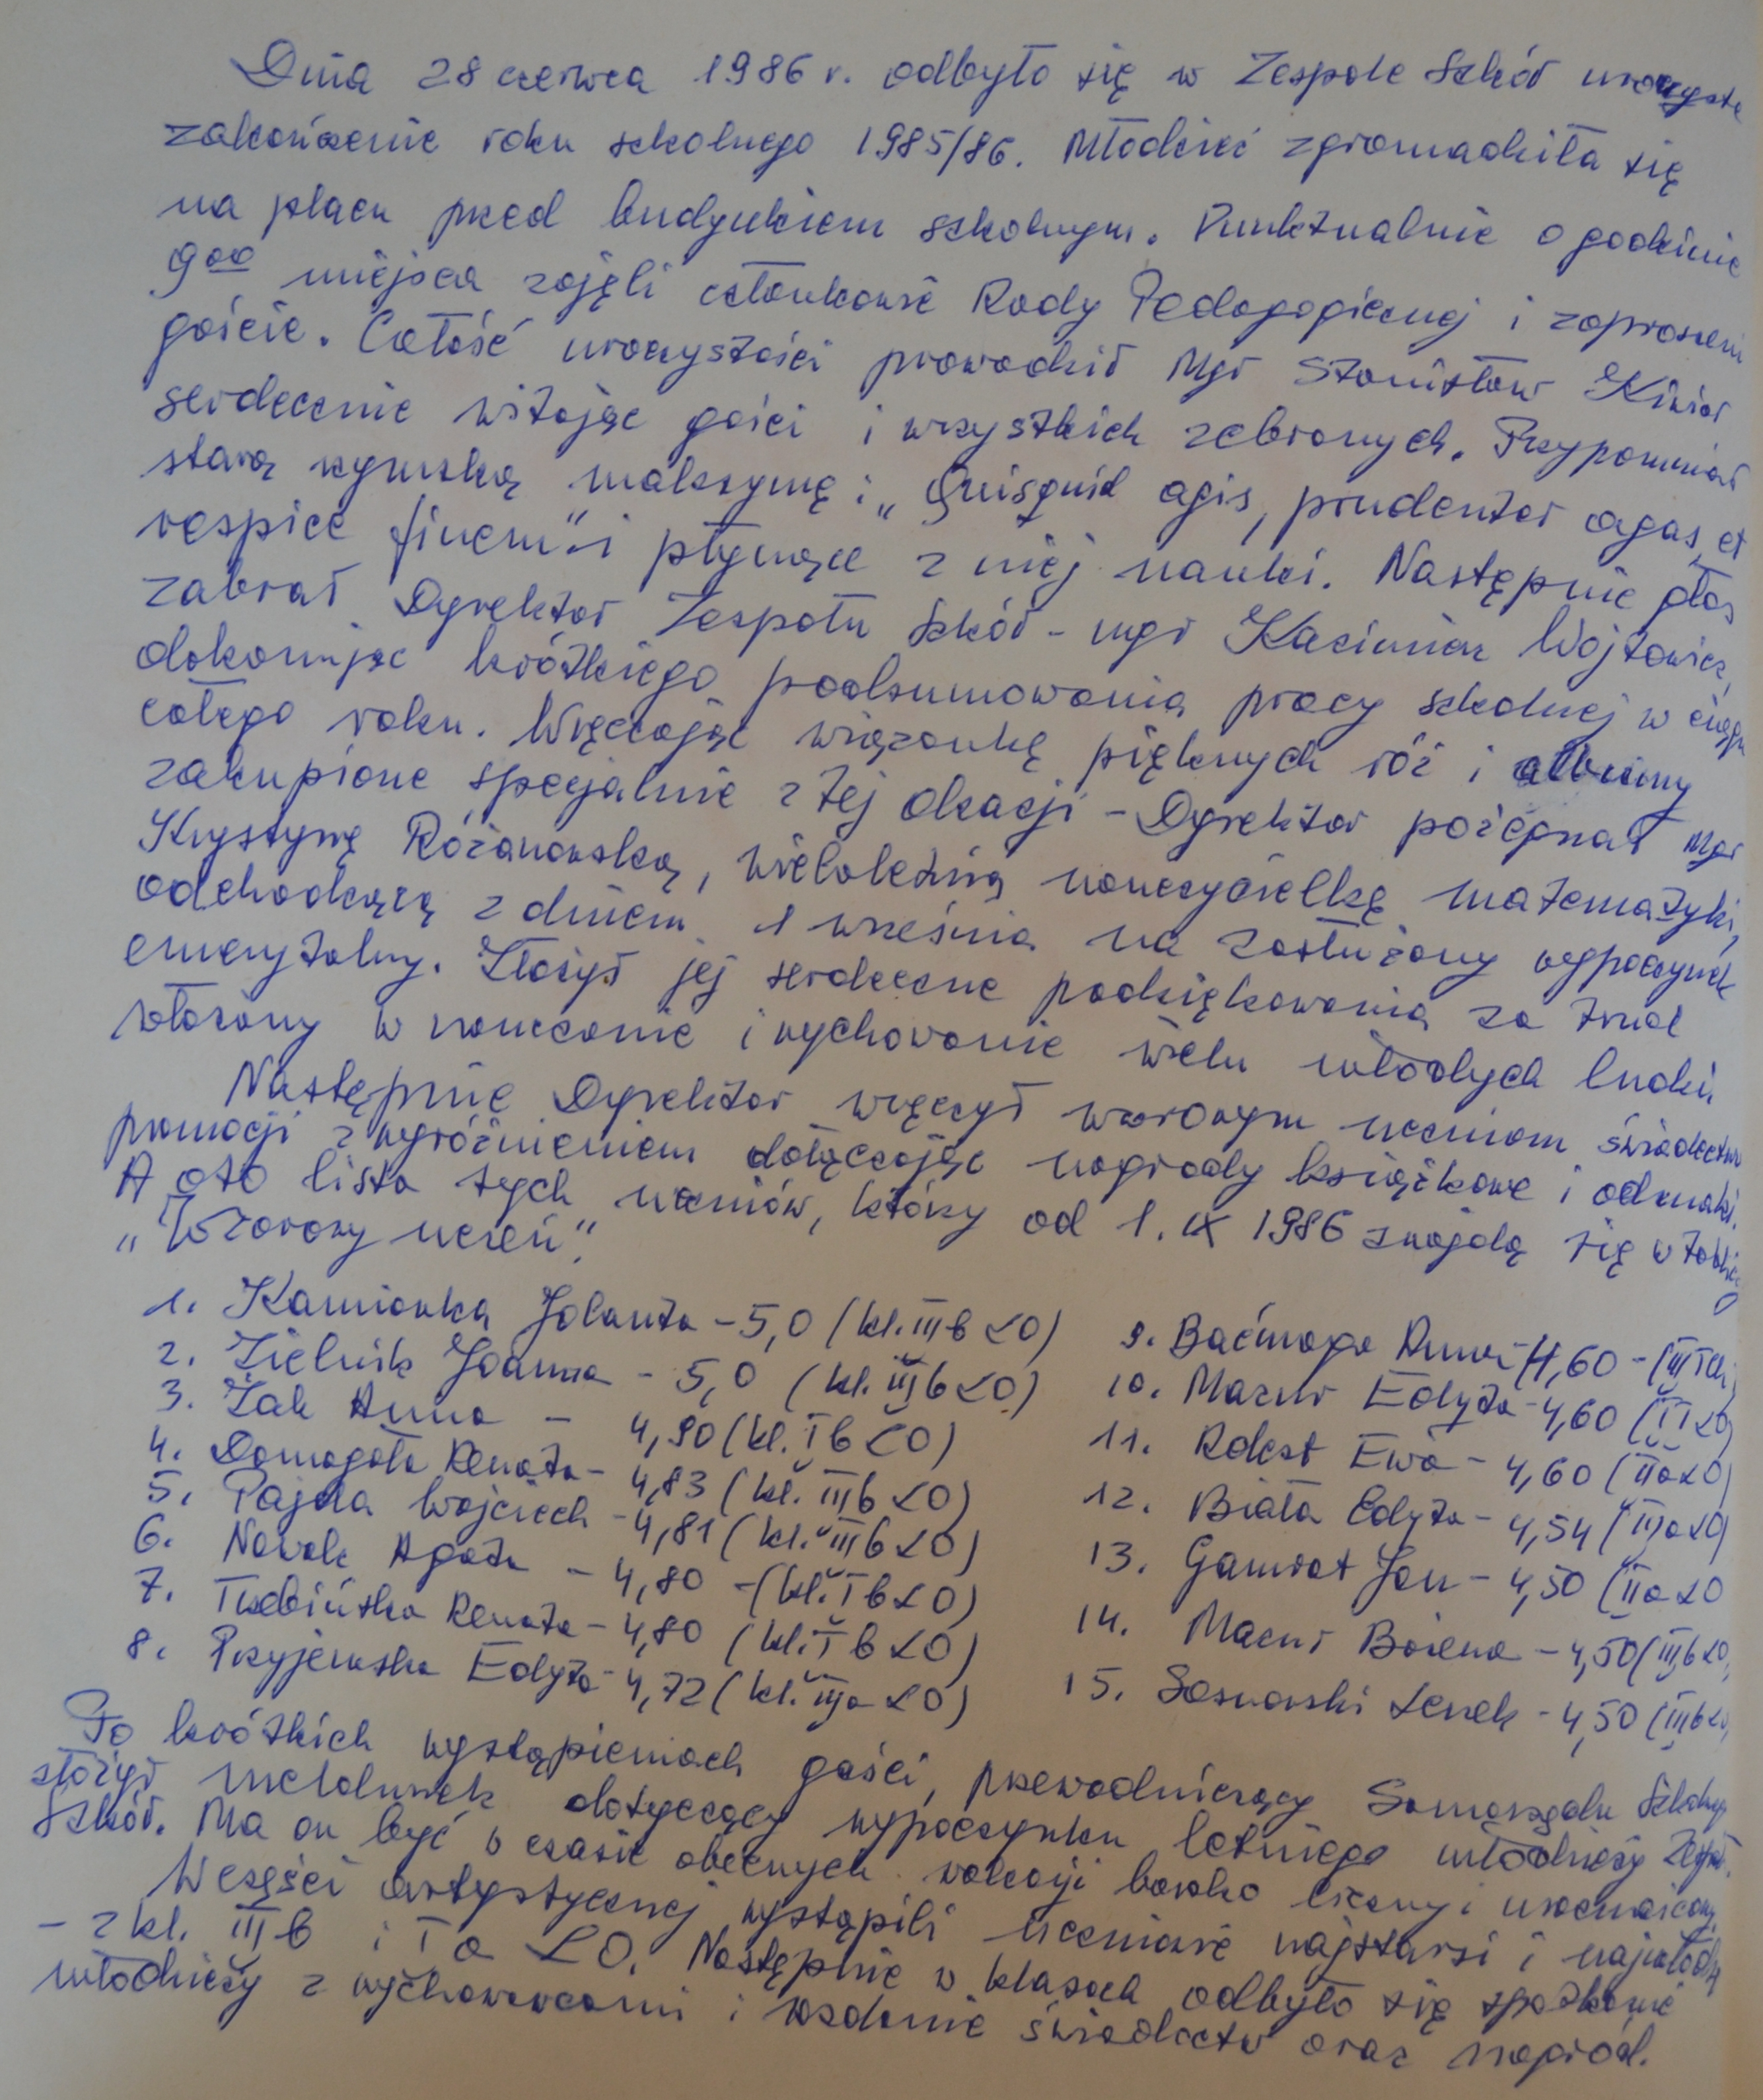 Dnia 28 czerwca 1986 r. odbyło się w Zespole Szkół uroczyste
zakończenie roku szkolnego 1985/86. Młodzież zgromadziła się
na placu przed budynkiem szkolnym. Punktualnie o godzinie
9⁰⁰ miejsca zajęli członkowie Rady Pedagogicznej i zaproszeni
goście. Całość uroczystości prowadził mgr Stanisław Kiwior
serdecznie witając gości i wszystkich zebranych. Przypomniał
starą rzymską maksymę: „Quisquid agis, prudenter agas, et
respice finem” i płynące z niej nauki. Następnie głos
zabrał Dyrektor Zespołu Szkół - mgr Kazimierz Wójtowicz,
dokonując krótkiego podsumowania pracy szkolnej w ciągu
całego roku. Wręczając wiązankę pięknych róż i albumy
zakupione specjalnie z tej okazji - Dyrektor pożegnał mgr
Krystynę Różanowską, wieloletnią nauczycielkę matematyki,
odchodzącą z dniem 1 września na zasłużony wypoczynek
emerytalny. Złożył jej serdeczne podziękowania za trud
włożony w nauczanie i wychowanie wielu młodych ludzi.
Następnie Dyrektor wręczył wzorowym uczniom świadectwa
promocji z wyróżnieniem dołączając nagrody książkowe i odznaki.
A oto lista tych uczniów, którzy od 1. IX 1986 znajdą się w tablicy
„Wzorowy uczeń”.
1. Kamionka Jolanta - 5,0 (kl. III b LO)
2. Zielnik Joanna - 5,0 (kl. III b LO)
3. Żak Anna - 4,90 (kl. I b LO)
4. Domagała Renata - 4,83 (kl. III b LO)
5. Pajda Wojciech - 4,81 (kl. III b LO)
6. Nowak Agata - 4,80 - (kl. I b LO)
7. Trzebińska Renata - 4,80 (kl. I b LO)
8. Przyjemska Edyta - 4,72 (kl. III a LO)
9. Baćmaga Anna - 4,60 - (III
10. Mazur Edyta - 4,60 (LO)
11. Rdest Ewa - 4,60 (II a LO)
12. Biała Edyta - 4,54 (III a LO)
13. Gamrat Jan - 4,50 (II a LO
14. Mazur Bożena - 4,50 (III b LO)
15. Sosnowski Leszek - 4,50 (III b LO)
Po krótkich wystąpieniach gości, przewodniczący Samorządu Szkolnego
złożył meldunek dotyczący wypoczynku letniego młodzieży Zesp.
Szkół. Ma on być w czasie obecnych wakacji bardzo liczny i urozmaicony.
W części artystycznej wystąpili uczniowie najstarsi i najmłodsi
- z kl. III b i I a LO. Następnie w klasach odbyło się spotkanie
młodzieży z wychowawcami i rozdanie świadectw oraz nagród.